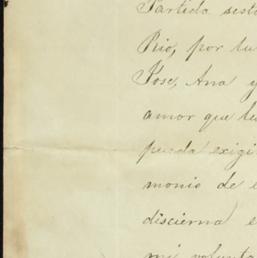 Partida sest
Rio, por tu
Jose, Ana y
amor que le
pueda exigi
monio de e
discierna e
mi volunta